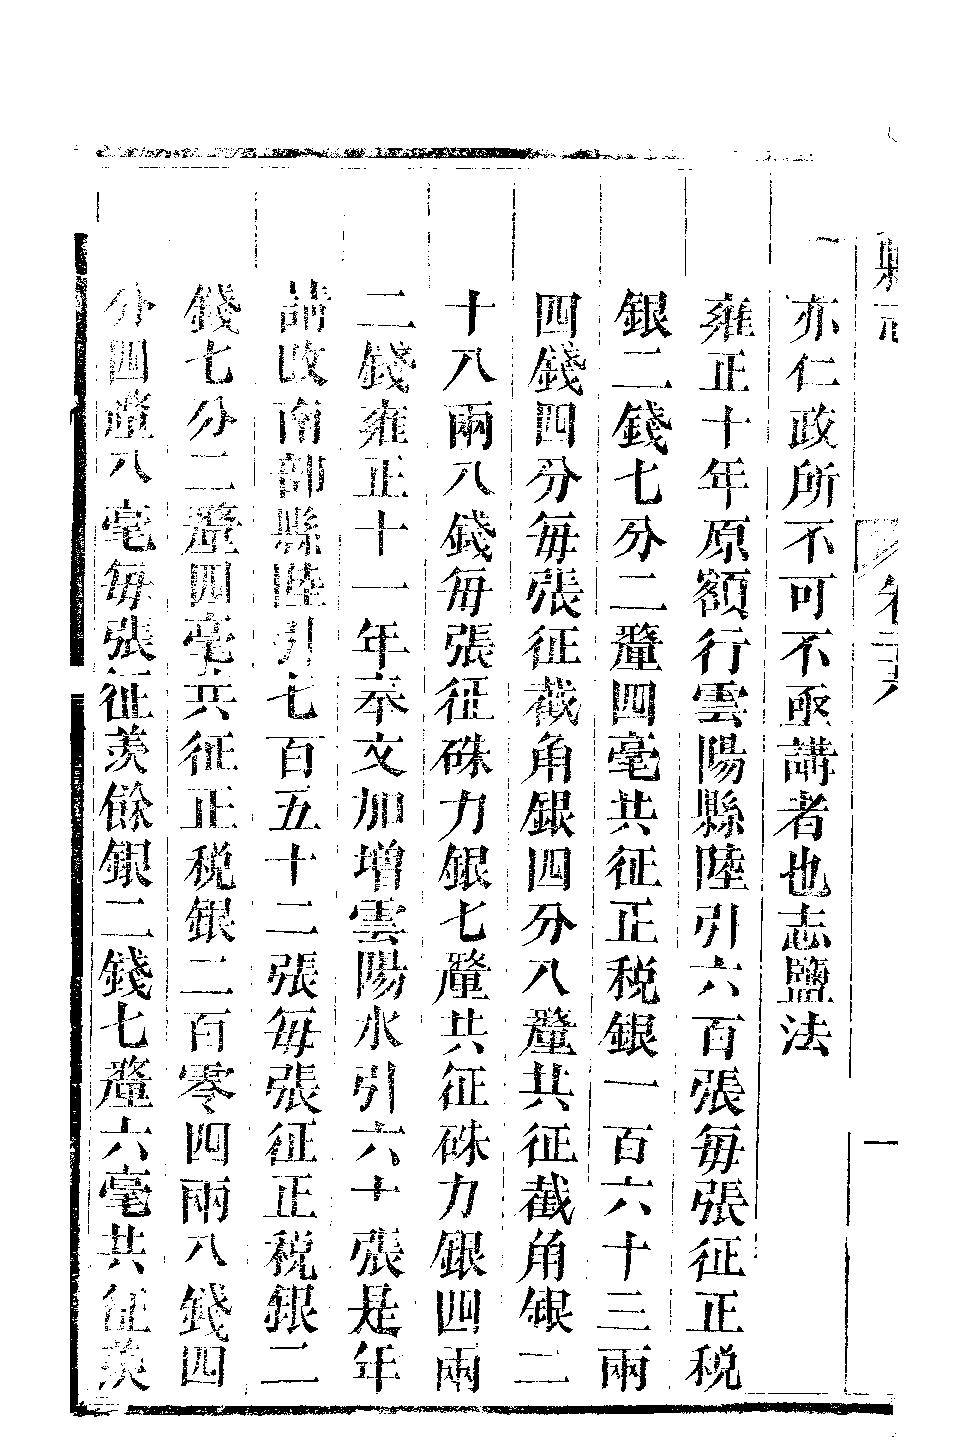 縣志
卷六
一
亦仁政所不可不亟講者也志鹽法
雍正十年原額行雲陽縣陸引六百張每張征正税
銀二錢七分二釐四毫共征正税銀一百六十三兩
四錢四分每張征截角銀四分八釐共征截角銀二
十八兩八錢每張征硃力銀七釐共征硃力銀四兩
二錢雍正十一年奉文加增雲陽水引六十張是年
請改南部縣陸引七百五十二張每張征正税銀二
錢七分二釐四毫共征正税銀二百零四兩八錢四
分四釐八毫每張征羨餘銀二錢七釐六毫共征羨